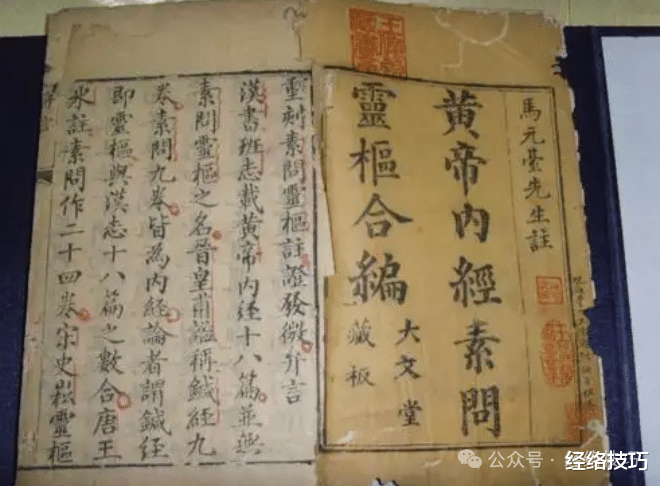 馬元臺先生註
黃帝內經素問
靈樞合編
大文堂
藏板
重刻素問靈樞註證發微弁言
漢書班志載黃帝內經十八篇並無
素問靈樞之名晉皇甫謐稱鍼經九
卷素問九卷皆為內經論者謂鍼經
即靈樞與漢志十八篇之數合唐王
冰註素問作二十四卷宋史崧靈樞
公众号·经络技巧